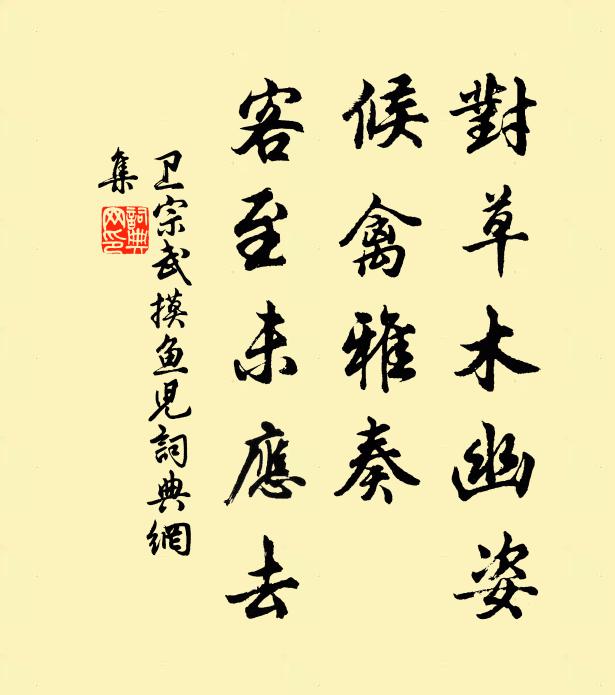 對草木幽姿
候禽雅奏
客至未應去
卫宗武摸鱼児詞典網
集
詞典网印